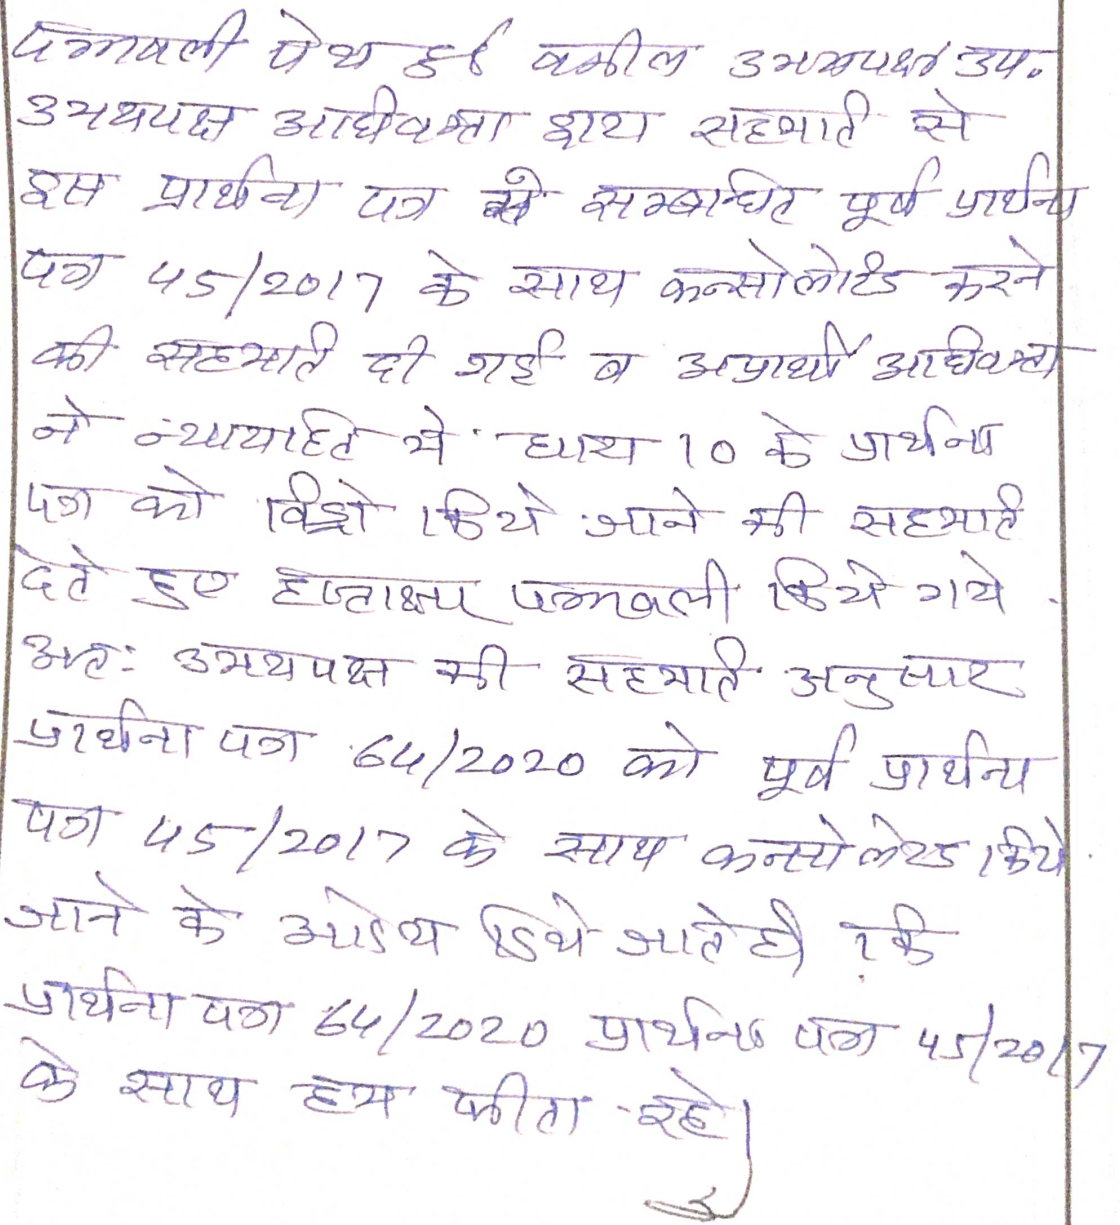 पत्रावली पेश हुई वकील उभयपक्ष उप.
उभयपक्ष अधिवक्ता द्वारा सहमति से
इस प्रार्थना पत्र से सम्बन्धित पूर्व प्रार्थना
पत्र 45/2017 के साथ कन्सोलेटेड करने
की सहमति दी गई व अप्रार्थी अधिवक्ता
ने न्यायहित में धारा 10 के प्रार्थना
पत्र को विड्रो किये जाने की सहमति
देते हुए हस्ताक्षर पत्रावली किये गये
अतः उभयपक्ष की सहमति अनुसार
प्रार्थना पत्र 64/2020 को पूर्व प्रार्थना
पत्र 45/2017 के साथ कन्सोलेटेड किये
जाने के आदेश दिये जाते है कि
प्रार्थना पत्र 64/2020 प्रार्थना पत्र 45/2017
के साथ हम फीता रहे।